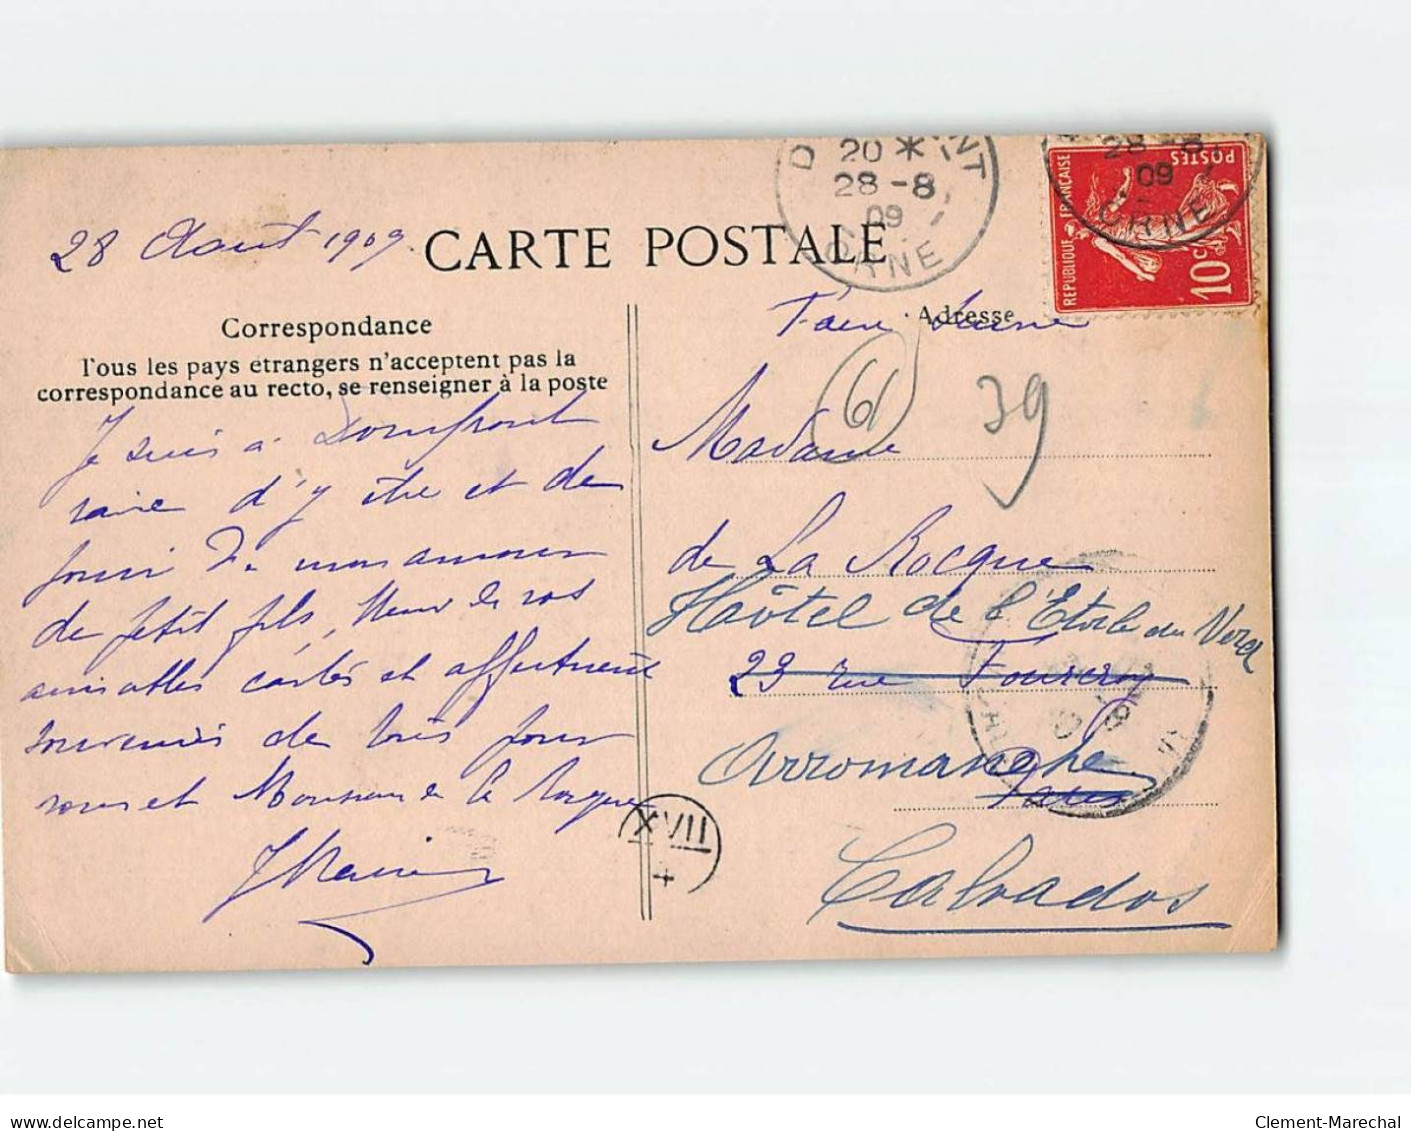 28 Aout 1909
CARTE POSTALE
D NT
20 *
28 - 8
09
ORNE
28 - 8
09
ORNE
REPUBLIQUE FRANÇAISE
POSTES
10 c
Correspondance
Tous les pays étrangers n'acceptent pas la
correspondance au recto, se renseigner à la poste
Adresse
Faire suivre
61
39
Je suis à Domfront
ravie d'y être et de
jouir de mon amour
de petit fils, Merci de vos
aimables cartes et affectueux
souvenirs de tous pour
vous et Monsieur de la Rocque
Madame
de La Rocque
Hôtel de l'Etoile du Nord
23 rue Fourcroy
Arromanche
Paris
Calvados
XVII
4
delcampe.net
Clement-Marechal